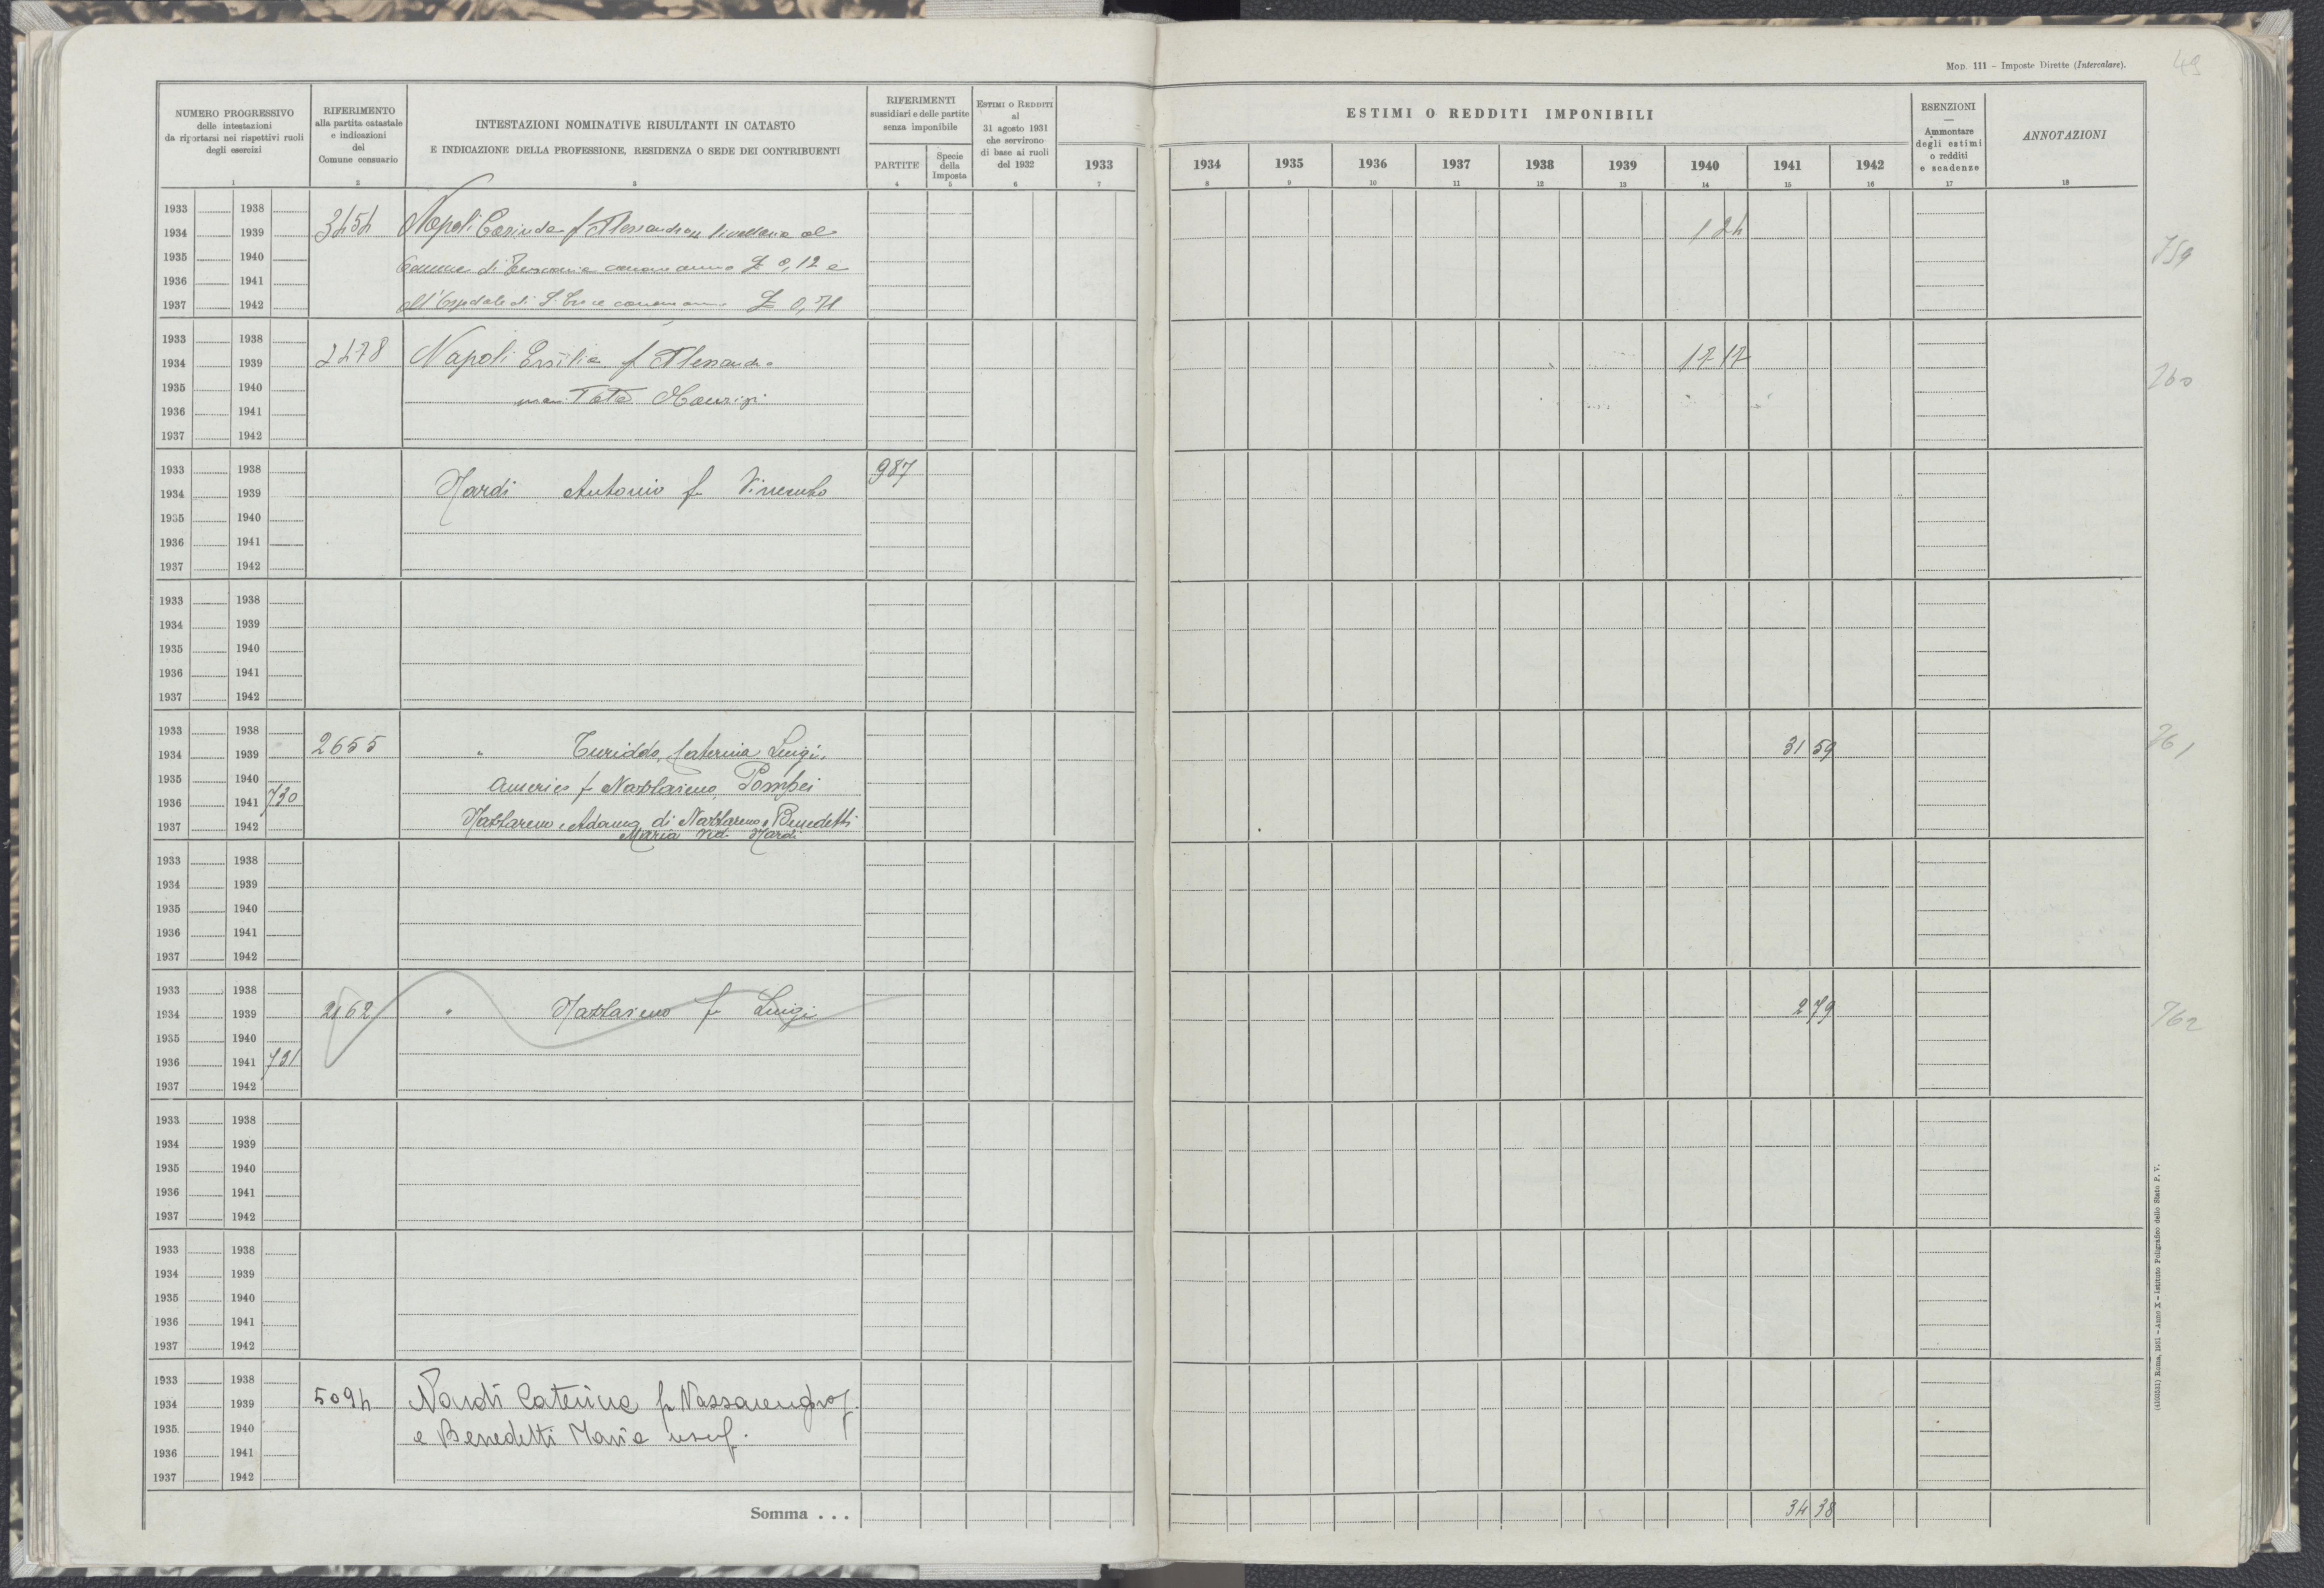 MOD. 111 – Imposte Dirette (Intercalare).
49
NUMERO PROGRESSIVO
delle intestazioni
da riportarsi nei rispettivi ruoli
degli esercizi
1
RIFERIMENTO
alla partita catastale
e indicazioni
del
Comune censuario
2
INTESTAZIONI NOMINATIVE RISULTANTI IN CATASTO
E INDICAZIONE DELLA PROFESSIONE, RESIDENZA O SEDE DEI CONTRIBUENTI
3
RIFERIMENTI
sussidiari e delle partite
senza imponibile
PARTITE
4
Specie
della
Imposta
5
ESTIMI O REDDITI
al
31 agosto 1931
che servirono
di base ai ruoli
del 1932
6
1933
7
ESTIMI O REDDITI IMPONIBILI
1934 1935 1936 1937 1938 1939 1940 1941 1942
8 9 10 11 12 13 14 15 16
ESENZIONI
—
Ammontare
degli estimi
o redditi
e scadenze
17
ANNOTAZIONI
18
1933 1938
1934 1939 3454 Napoli f Alessandro livellaria al 1 24
1935 1940 Comune di canone annuo £ 0,12 e 759
1936 1941
1937 1942 all'Ospedale di S. Croce canone annuo £ 0,71
1933 1938
1934 1939 2478 Napoli Ersilia f Alessandro 17 17
1935 1940 760
1936 1941 mar. Tata
1937 1942
1933 1938 987
1934 1939 Nardi Antonio fu Vincenzo
1935 1940
1936 1941
1937 1942
1933 1938
1934 1939
1935 1940
1936 1941
1937 1942
1933 1938
1934 1939 2655 " Turiddo, Caterina, Luigi, 31 59 761
1935 1940 Americo f Nazzareno, Pompei
1936 1941 730
1937 1942 Nazzareno e di Nazzareno e Benedetti
Maria Ved. Nardi
1933 1938
1934 1939
1935 1940
1936 1941
1937 1942
1933 1938
1934 1939 2962 " Nazzareno fu Luigi 2 79 762
1935 1940
1936 1941 731
1937 1942
1933 1938
1934 1939
1935 1940
1936 1941
1937 1942
1933 1938
1934 1939
1935 1940
1936 1941
1937 1942
1933 1938
1934 1939 5094 Nardi Caterina fu Nazzareno prop.
1935 1940 e Benedetti Maria usuf.
1936 1941
1937 1942
Somma . . . 34 38
Roma, 1931 – Anno X – Istituto Poligrafico dello Stato P. V.